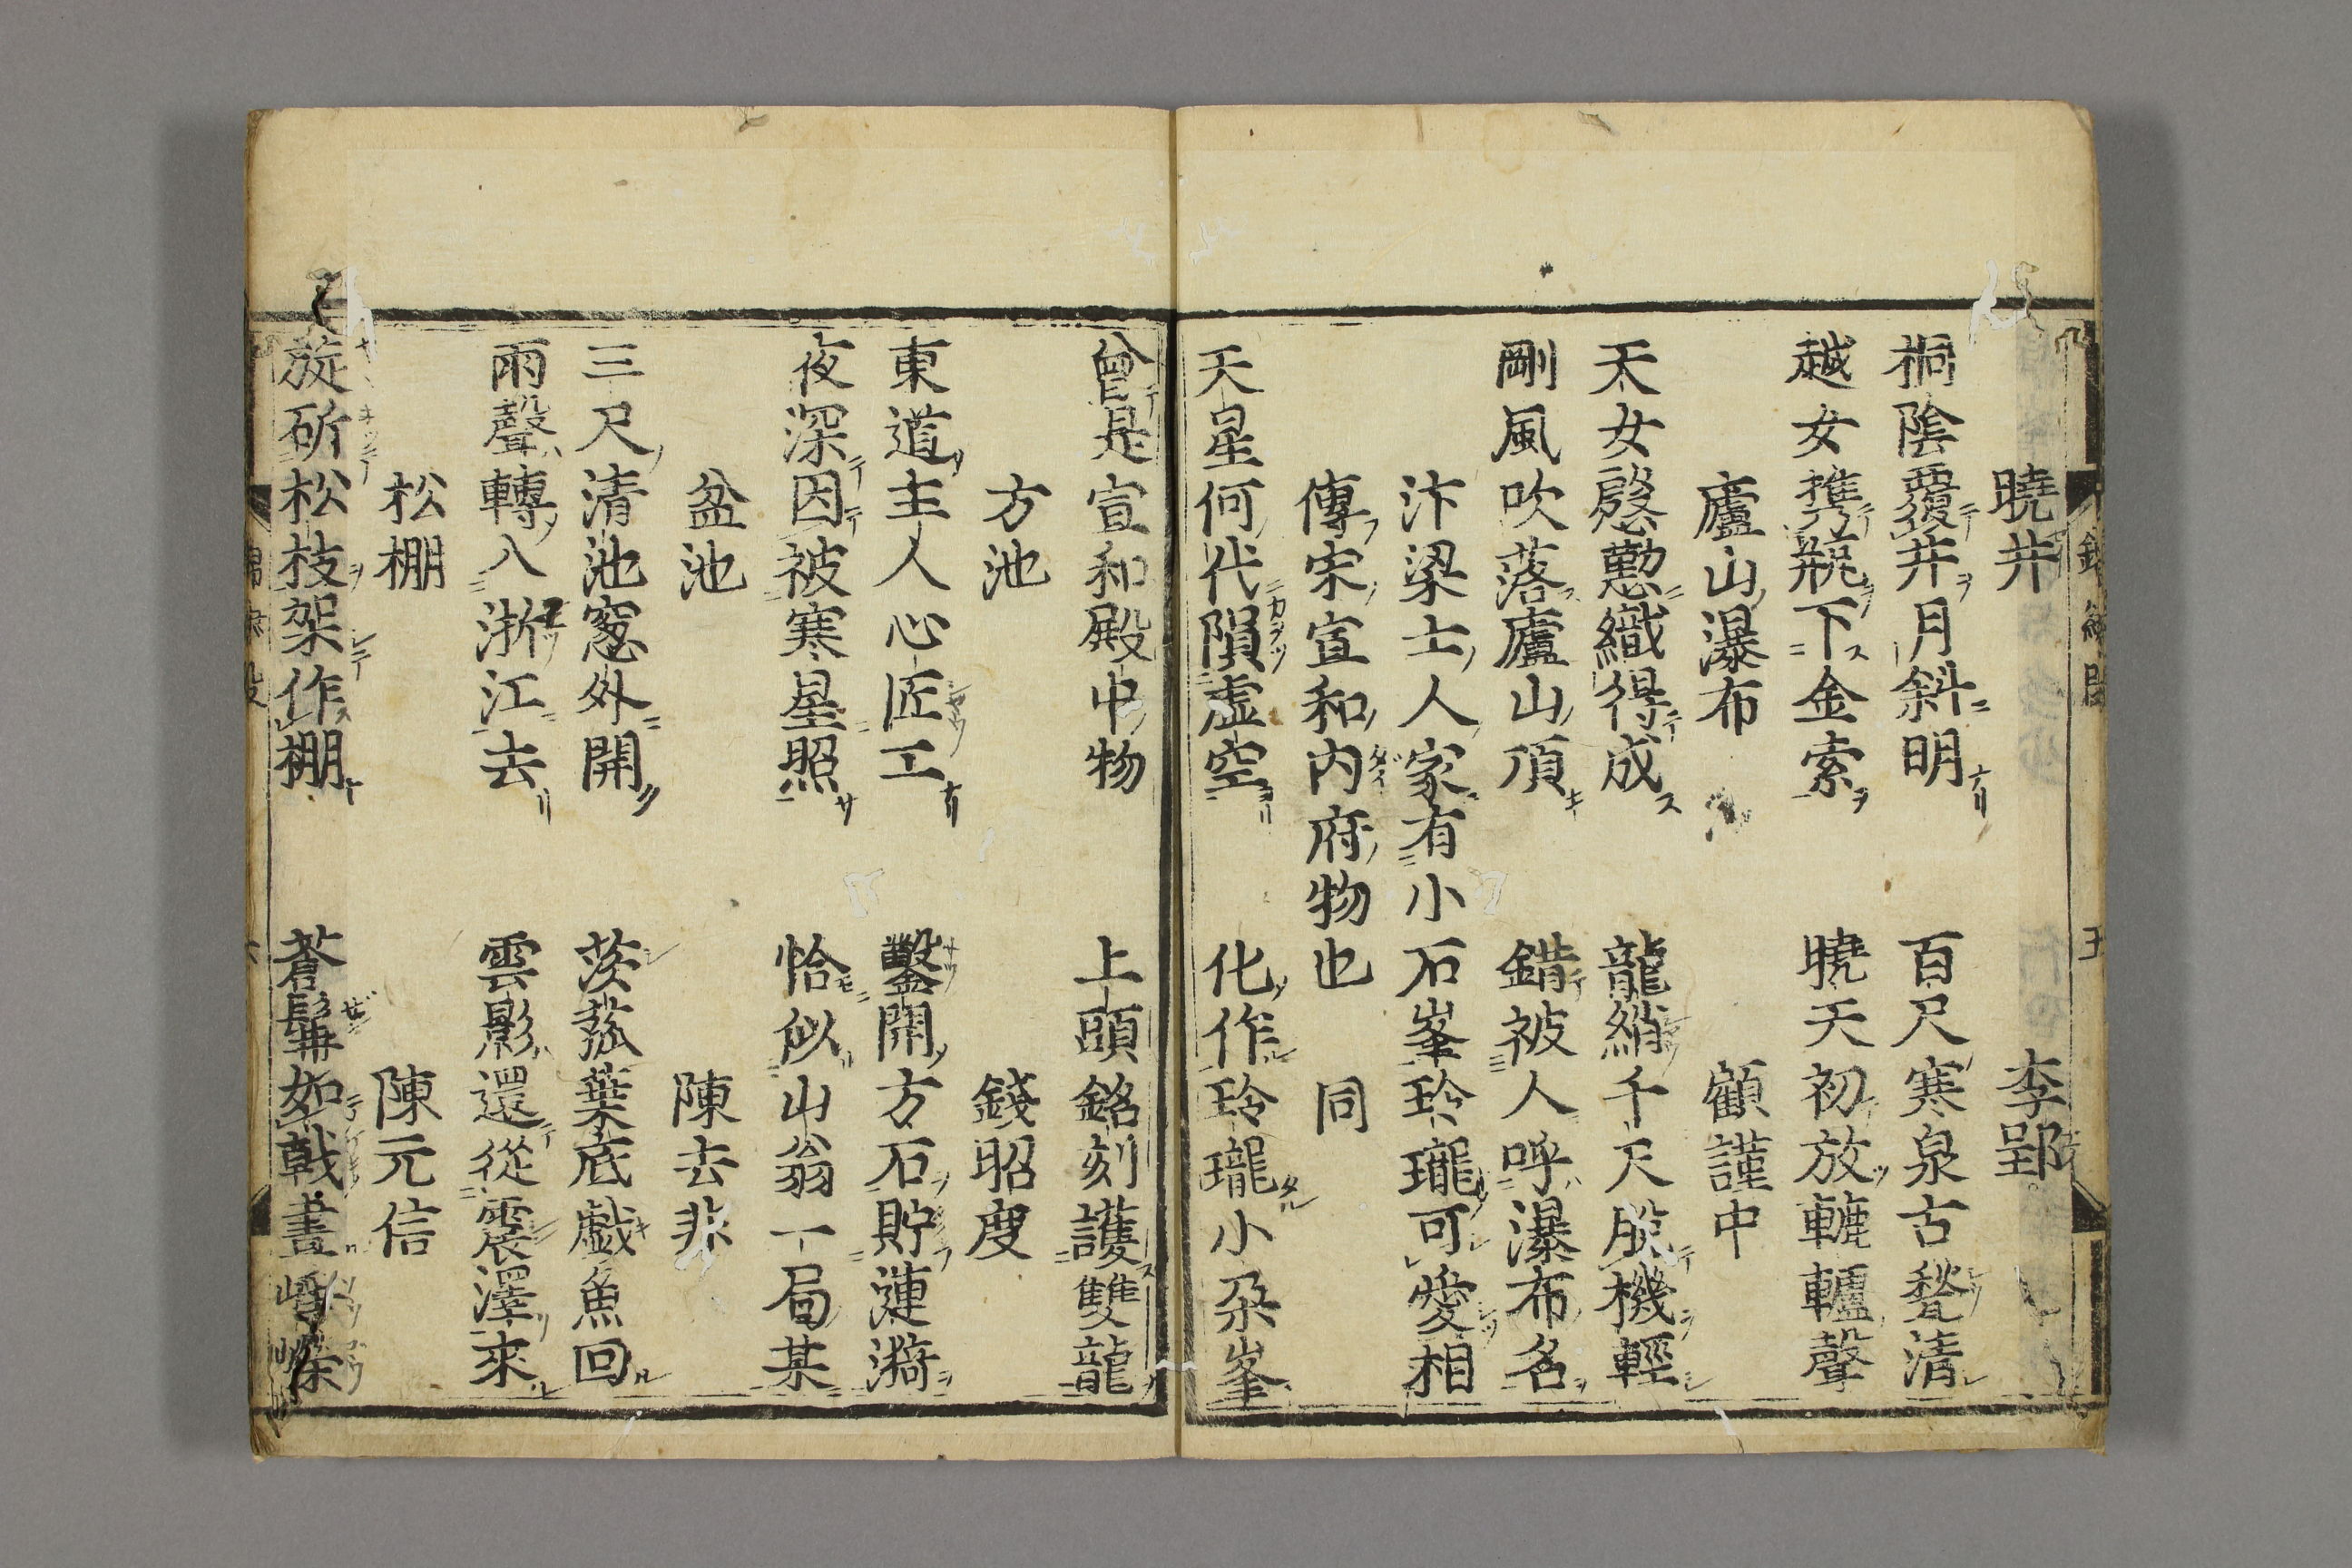 曉井　李郢
桐陰覆井月斜明　百尺寒泉古甃清
越女携瓶下金索　曉天初放轆轤聲
廬山瀑布　顧謹中
天女慇懃織得成　龍綃千尺脫機輕
剛風吹落廬山頂　錯被人呼瀑布名
汴梁士人家有小石峯玲瓏可愛相
傳宋宣和内府物也　同
天星何代隕虛空　化作玲瓏小朶峯
曾是宣和殿中物　上頭銘刻護雙龍
方池　錢昭度
東道主人心匠工　鑿開方石貯漣漪
夜深因被寒星照　恰似山翁一局棊
盆池　陳去非
三尺清池窓外開　茨菰葉底戯魚回
雨聲轉入浙江去　雲影還從震澤來
松棚　陳元信
旋斫松枝架作棚　蒼髯如戟晝崢嶸